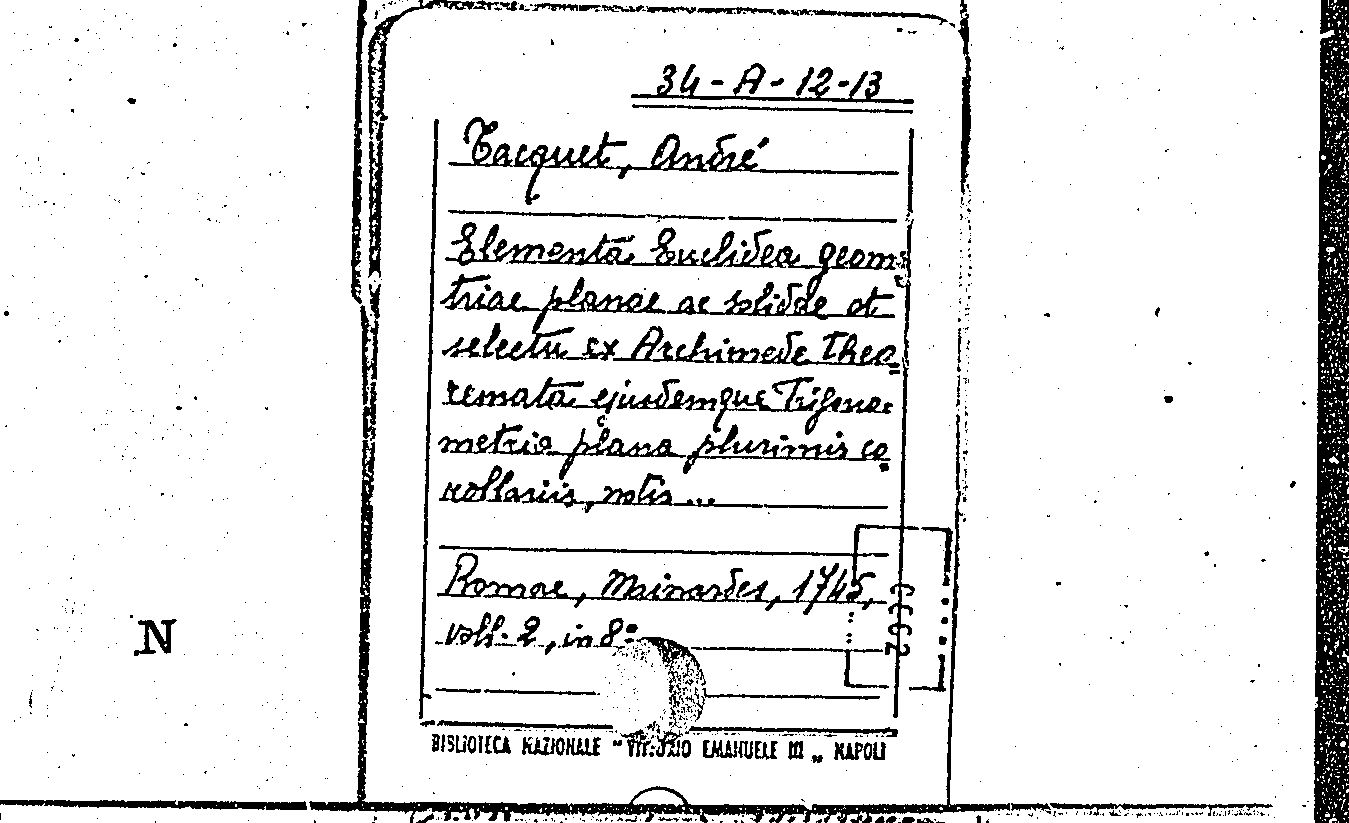 34-A-12-13
Tacquet, André
Elementa Euclidea geome=
triae planae ac solidae et
selecta ex Archimede theo=
remata ejusdemque Trigono=
metria plana plurimis co=
rollariis, notis ...
Romae, Mainardes, 1745,
voll. 2, in 8º
N
BIBLIOTECA NAZIONALE "VITTORIO EMANUELE III„ NAPOLI